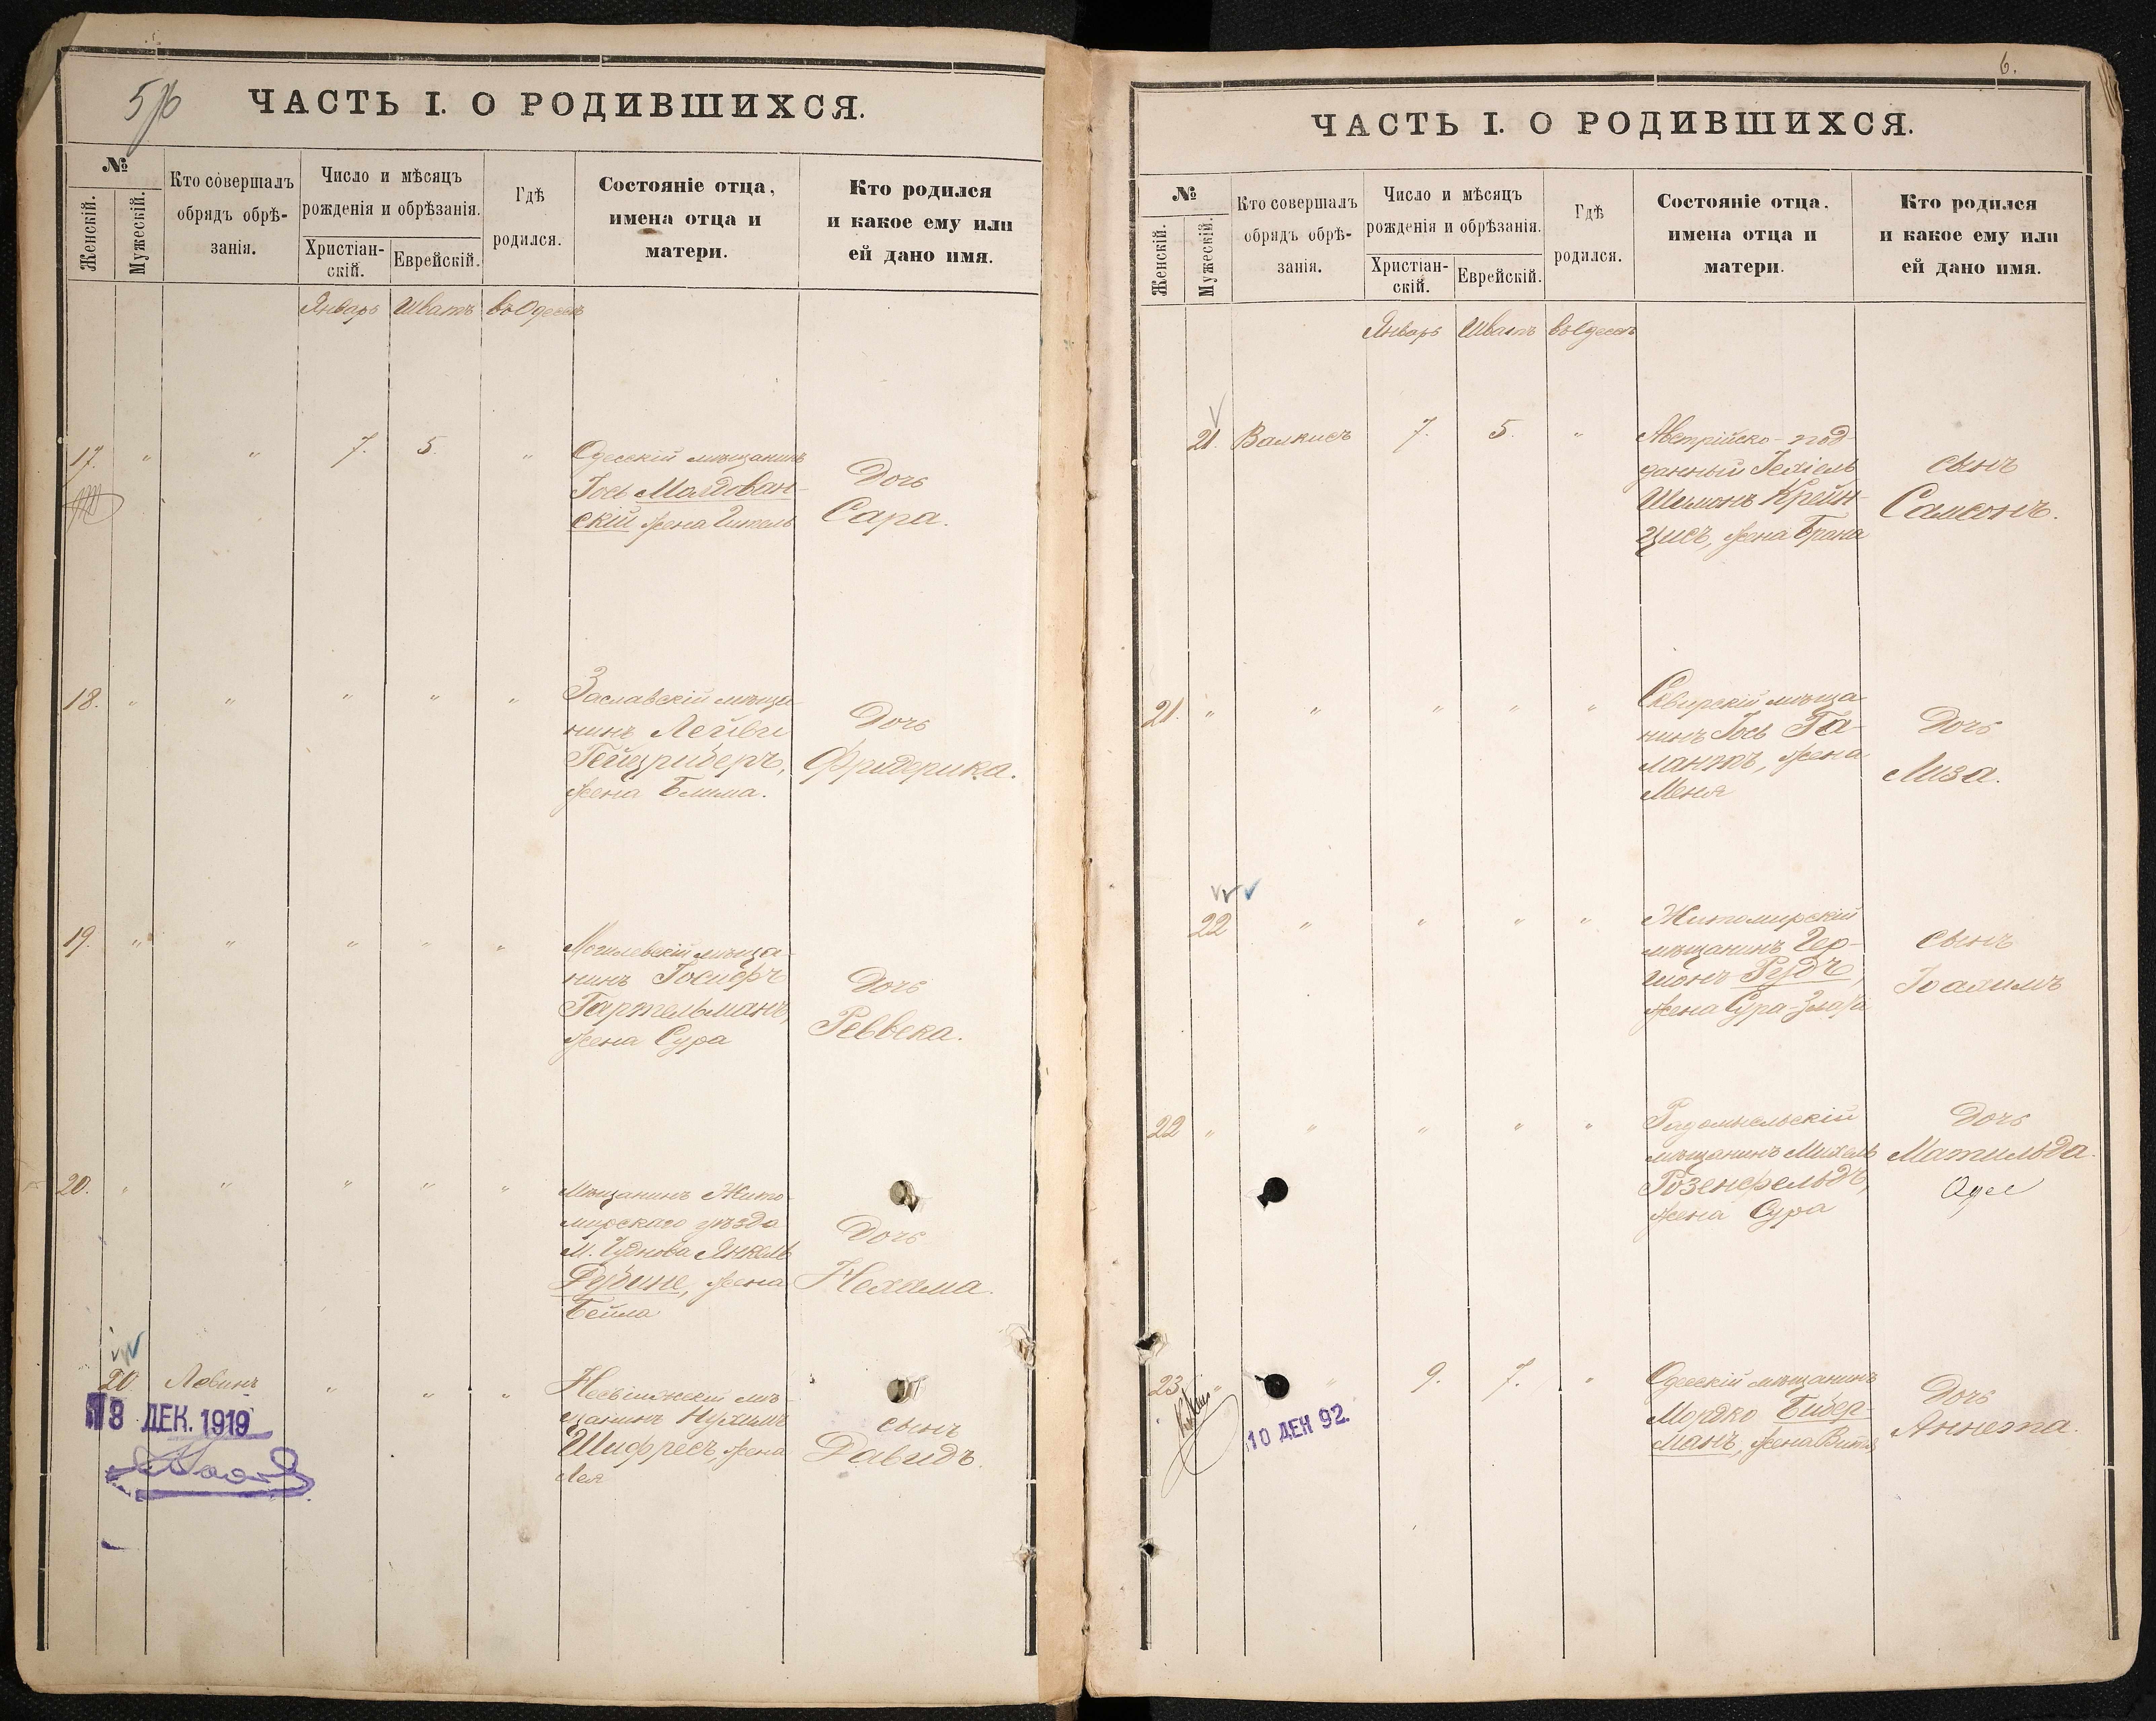 5
ЧАСТЬ I. О РОДИВШИХСЯ.
№
Женскій.
Мужескій.
Кто совершалъ
обрядъ обрѣ-
занія.
Число и мѣсяцъ
рожденія и обрѣзанія.
Христіан-
скій.
Еврейскій.
Гдѣ
родился.
Состояніе отца,
имена отца и
матери.
Кто родился
и какое ему или
ей дано имя.
Январь Шватъ въ Одессѣ
17. " " 7. 5. "
Одесскій мѣщанинъ
Іось Молдован-
скій жена
Дочь
Сара.
18. " " " " "
Заславскій мѣща-
нинъ Лейви
жена Блима.
Дочь
Фридерика.
19. " " " " "
Могилевскій мѣща-
нинъ Іосифъ
Гартельманъ,
жена Сура
Дочь
Реввека.
20. " " " " "
Мѣщанинъ Жито-
мирскаго уѣзда
М. Чуднова Янкель
жена
Бейла
Дочь
Нехама.
20 Левинъ " " "
мѣ-
щанинъ Нухимъ
Шифресъ, жена
Лея
сынъ
Давидъ.
18 ДЕК. 1919
6.
ЧАСТЬ I. О РОДИВШИХСЯ.
№
Женскій.
Мужескій.
Кто совершалъ
обрядъ обрѣ-
занія.
Число и мѣсяцъ
рожденія и обрѣзанія.
Христіан-
скій.
Еврейскій.
Гдѣ
родился.
Состояніе отца,
имена отца и
матери.
Кто родился
и какое ему или
ей дано имя.
Январь Шватъ въ Одессѣ
21. Валкисъ 7. 5. "
Австрійско-под-
данный Іехіель
Шимонъ Крейн-
цисъ, жена Брана
сынъ
Самсонъ.
21. " " " " "
Сквирскій мѣща-
нинъ Іось Га-
лантъ, жена
Меня
Дочь
Лиза.
22 " " " "
Житомирскій
мѣщанинъ Гер-
шонъ
жена Сура-Злата
сынъ
Іоахимъ
22 " " " " "
Радомысльскій
мѣщанинъ Михель
Розенфельдъ,
жена Сура
Дочь
Матильда.
23. " " 9. 7. "
Одесскій мѣщанинъ
Мордко Бибер-
манъ, жена
Дочь
Аннета.
10 ДЕК 92.